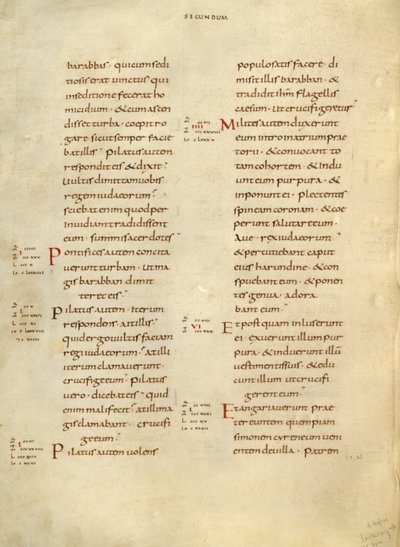 SECUNDUM
barabbas · quicumsedi
tiosis erat uinctus qui
inseditione fecerat ho
micidium · &cumascen
disset turba · coepit ro
gare sicut semper facie
bat illis · Pilatus autem
respondit eis & dixit ·
Uultis dimittam uobis
regem iudaeorum ·
sciebat enim quod per
inuidiam tradidissent
eum · summi sacerdotes ·
Pontifices autem concita
uerunt turbam · ut ma
gis barabban dimit
teret eis ·
Pilatus autem · iterum
respondens · ait illis ·
quid ergo uultis faciam
regi iudaeorum · at illi
iterum clamauerunt ·
crucifige eum · Pilatus
uero · dicebat eis · quid
enim mali fecit · at illi ma
gis clamabant · crucifi
ge eum ·
Pilatus autem uolens
populo satis facere · di
misit illis barabban · &
tradidit ihm flagellis
caesum · ut crucifigeretur
IIII
Milites autem duxerunt
eum intro in atrium prae
torii · & conuocant to
tam cohortem · & indu
unt eum purpura · &
inponunt ei · plectentes
spineam coronam · & coe
perunt salutare eum ·
Aue · rex iudaeorum ·
& percutiebant caput
eius harundine · & con
spuebant eum · & ponen
tes genua · adora
bant eum ·
VI
Et postquam inluserunt
ei · exuerunt illum pur
pura · & induerunt illū
uestimentis suis · & edu
cunt illum ut crucifi
gerent eum ·
Et angariauerunt prae
tereuntem quempiam
simonem cyreneum ueni
entem de uilla · Patrem